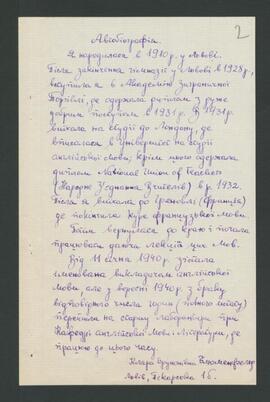 2
Автобіографія.
Я народилася в 1910 р. у Львові.
Після закінчення гімназії у Львові в 1928 р.,
вступила я в Академію Заграничної
Торговлі, де одержала диплом з дуже
добрим поступом в 1931 р. В 1931 р.
виїхала на студії до Лондону, де
вписалася в університет на студії
англійської мови; крім цього одержала
диплом National Union of Teachers
(Народне Зєднання Учителів) в р. 1932.
Після я виїхала до Гренобля (Франція)
де покінчила курс французької мови.
Потім вернулася до краю і почала
працювати даючи лекції цих мов.
Від 11 січня 1940 р. зістала
іменована викладачем англійської
мови, але у вересні 1940 р. з браку
відповідного числа годин
перейшла на старшу лаборантку при
Катедрі Англійської Мови і Літератури, де
працюю до цього часу.
Клара
Львів, Пекарська 1б.